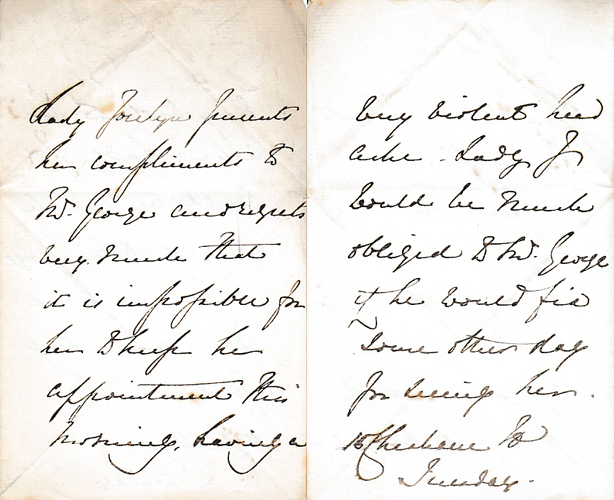 Lady Jocelyn presents
her compliments to
Mr. George and regrets
very much that
it is impossible for
her to keep her
appointment this
morning, having a
very violent head
ache. Lady J
would be much
obliged to Mr. George
if he would fix
some other day
for seeing her.
15 Chesham Pl
Tuesday.